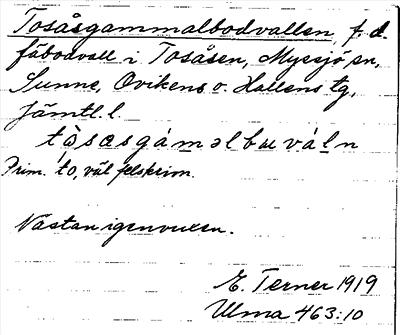 Tosåsgammalbodvallen, f. d.
fäbodvall i Tosåsen, Myssjö sn,
Sunne, Ovikens o. Hallens tg,
Jämtl. l.
tòsasgámǝlbuváln
Prim. ́to, väl felskrivn.
Nästan igenvuxen.
E. Terner 1919
Ulma 463:10